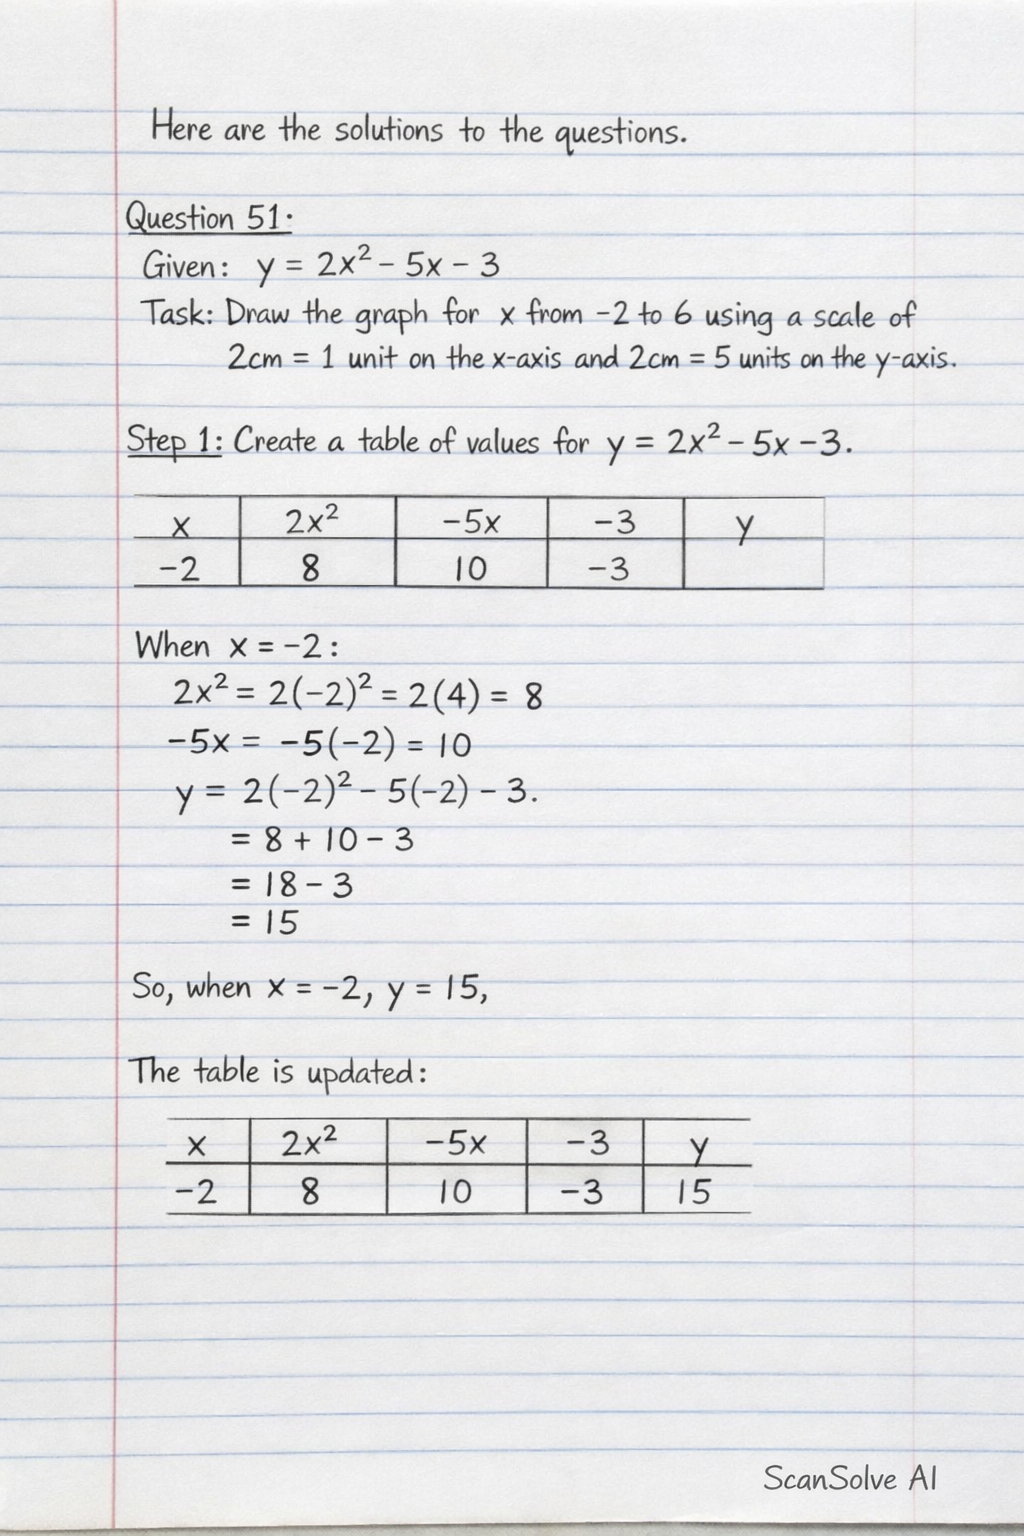 Here are the solutions to the questions.
Question 51:
Given: y = 2x² - 5x - 3
Task: Draw the graph for x from -2 to 6 using a scale of
2cm = 1 unit on the x-axis and 2cm = 5 units on the y-axis.
Step 1: Create a table of values for y = 2x² - 5x - 3.
x 2x² -5x -3 y
-2 8 10 -3
When x = -2:
2x² = 2(-2)² = 2(4) = 8
-5x = -5(-2) = 10
y = 2(-2)² - 5(-2) - 3.
= 8 + 10 - 3
= 18 - 3
= 15
So, when x = -2, y = 15,
The table is updated:
x 2x² -5x -3 y
-2 8 10 -3 15
ScanSolve AI